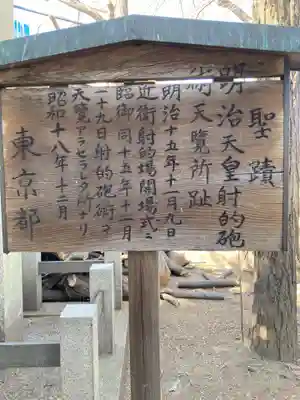 聖蹟
明治天皇射的砲
術天覧所趾
明治十五年十一月九日
近衛射的場開場式ニ
臨御同十五年十一月
二十九日射的砲術ヲ
天覧アラセラレタルナリ
昭和十八年十二月
東京都